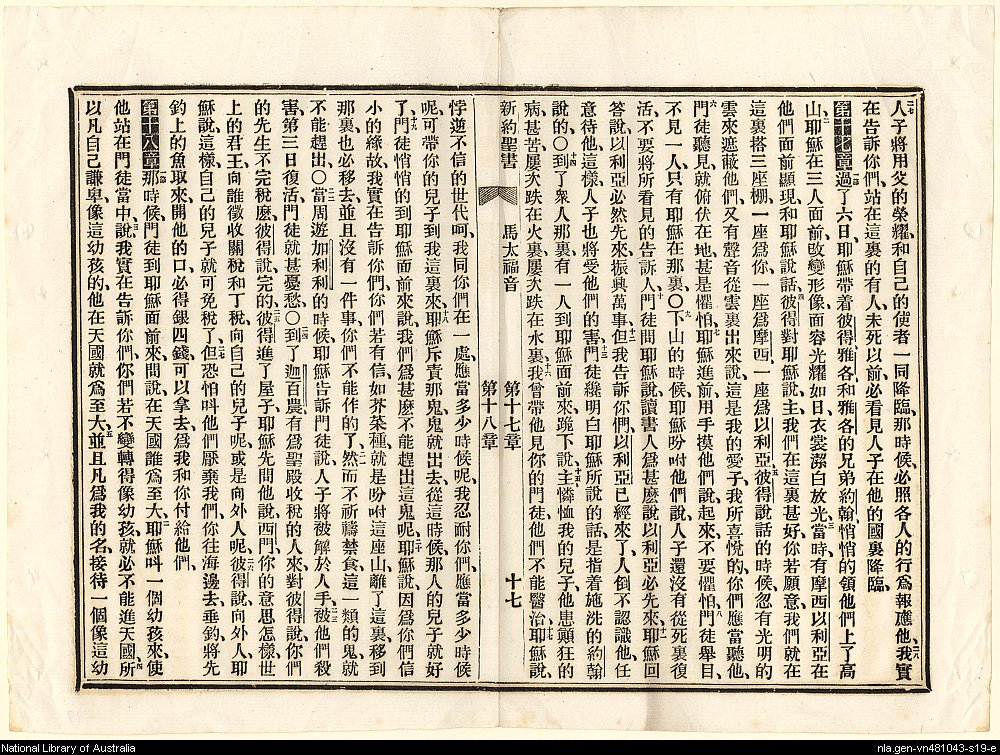 人子將用父的榮耀、和自己的使者一同降臨、那時候必照各人的行爲報應他、我實
在告訴你們、站在這裏的有人未死以前、必看見人子在他的國裏降臨、
第十七章 過了六日、耶穌帶着彼得雅各、和雅各的兄弟約翰、悄悄的領他們上了高
山、耶穌在三人面前改變形像、面容光耀如日、衣裳潔白放光、當時有摩西以利亞在
他們面前顯現、和耶穌說話、彼得對耶穌說、主、我們在這裏甚好、你若願意、我們就在
這裏搭三座棚、一座爲你、一座爲摩西、一座爲以利亞、彼得說話的時候、忽有光明的
雲來遮蔽他們、又有聲音從雲裏出來說、這是我的愛子、我所喜悅的、你們應當聽他、
門徒聽見、就俯伏在地、甚是懼怕、耶穌進前用手摸他們說、起來、不要懼怕、門徒舉目
不見一人、只有耶穌在那裏、〇下山的時候、耶穌吩咐他們說、人子還沒有從死裏復
活、不要將所看見的告訴人、門徒問耶穌說、讀書人爲甚麼說以利亞必先來、耶穌回
答說、以利亞必然先來、振興萬事、但我告訴你們、以利亞已經來了、人倒不認識他、任
意待他、這樣人子也將受他們的害、門徒纔明白耶穌所說的話、是指着施洗的約翰
說的、〇到了衆人那裏、有一人到耶穌面前來、跪下說、主憐恤我的兒子、他患顚狂的
病、甚苦、屢次跌在火裏、屢次跌在水裏、我曾帶他見你的門徒、他們不能醫治、耶穌說、
新約聖書 馬太福音 第十七章 十七
第十八章
悖逆不信的世代呵、我同你們在一處、應當多少時候呢、我忍耐你們、應當多少時候
呢、可帶你的兒子到我這裏來、耶穌斥責那鬼、鬼就出去、從這時候、那人的兒子就好
了、門徒悄悄的到耶穌面前來說、我們爲甚麼不能趕出這鬼呢、耶穌說、因爲你們信
小的緣故、我實在告訴你們、你們若有信如芥菜種、就是吩咐這座山離了這裏移到
那裏、也必移去、並且沒有一件事你們不能作的了、然而不祈禱禁食、這一類的鬼就
不能趕出、〇當周遊加利利的時候、耶穌告訴門徒說、人子將被解於人手、被他們殺
害、第三日復活、門徒就甚憂愁、〇到了迦百農、有爲聖殿收稅的人來對彼得說、你們
的先生不完稅麼、彼得說、完的、彼得進了屋子、耶穌先問他說、西門、你的意思怎樣、世
上的君王、向誰徵收關稅和丁稅、向自己的兒子呢、或是向外人呢、彼得說、向外人、耶
穌說、這樣自己的兒子就可免稅了、但恐怕呌他們厭棄我們、你往海邊去垂釣、將先
釣上的魚取來、開他的口、必得銀四錢、可以拿去爲我和你付給他們、
第十八章 那時候門徒到耶穌面前來、問說、在天國誰爲至大、耶穌呌一個幼孩來、使
他站在門徒當中、說、我實在告訴你們、你們若不變轉得像幼孩、就必不能進天國、所
以凡自己謙卑、像這幼孩的、他在天國就爲至大、並且凡爲我的名、接待一個像這幼
National Library of Australia
nla.gen-vn481043-s19-e